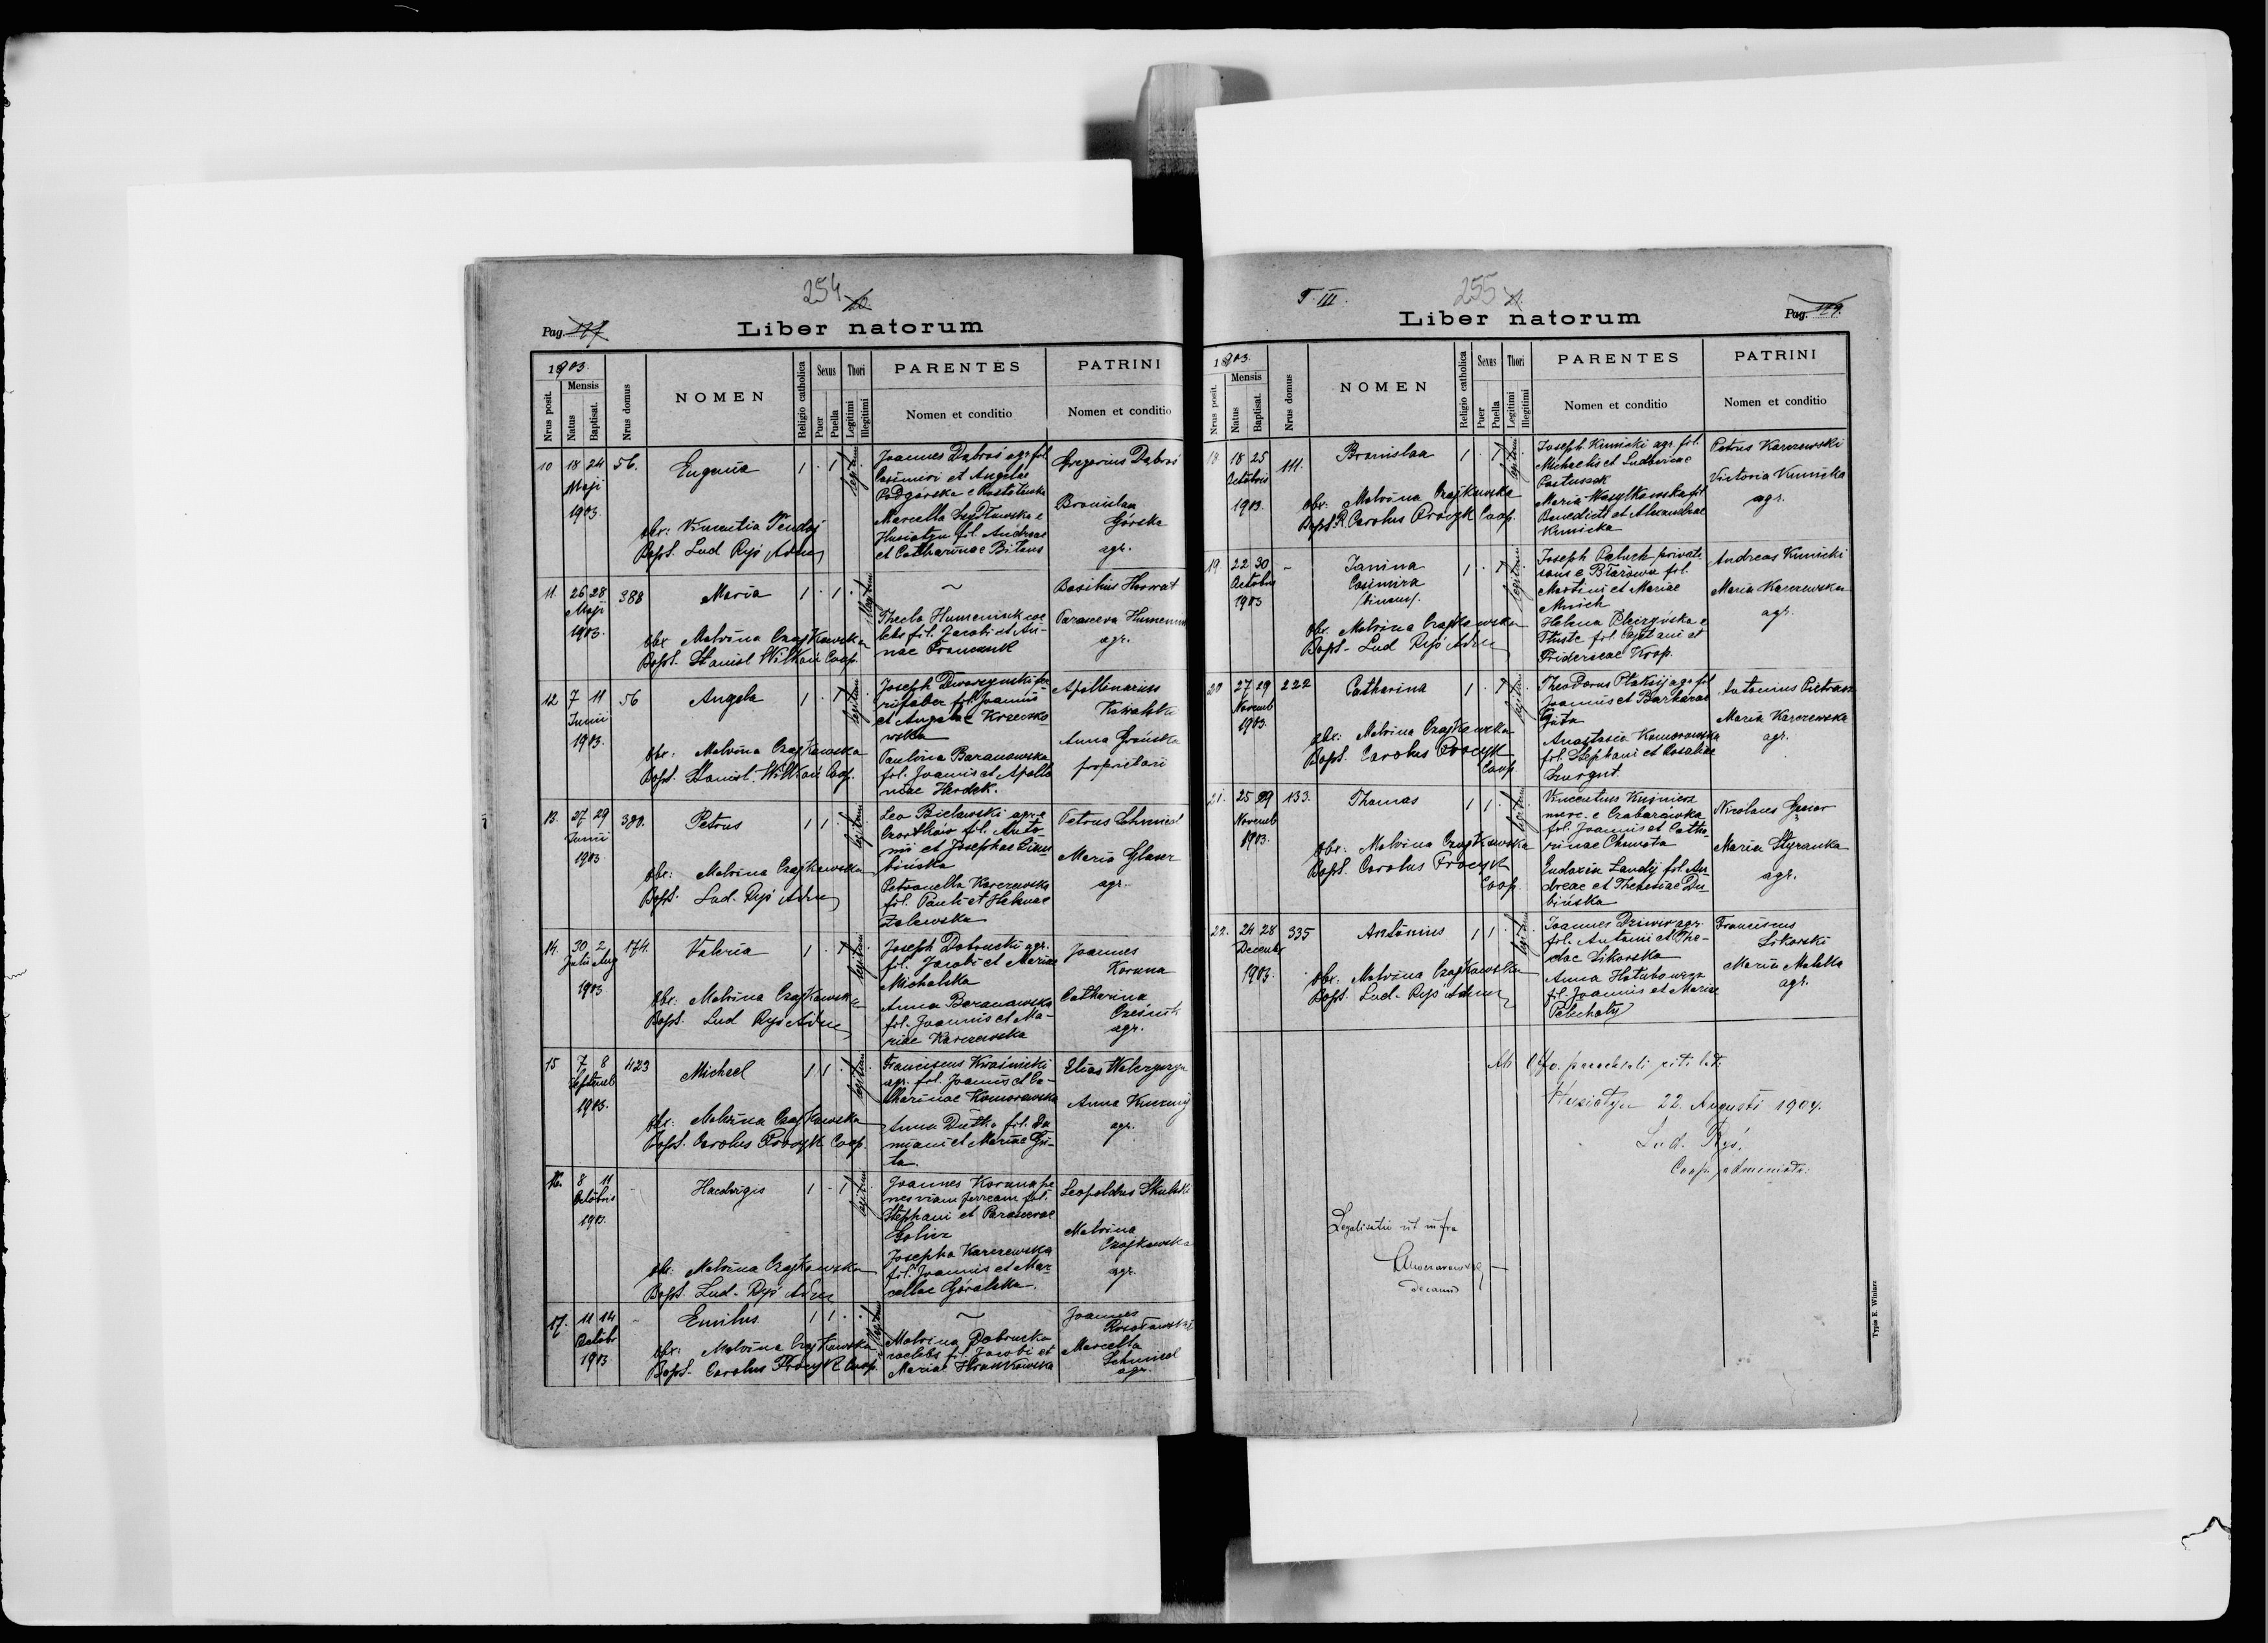 254
Pag.
Liber natorum
1903.
Nrus posit.
Mensis
Natus
Baptisat.
Nrus domus
NOMEN
Religio catholica
Sexus
Puer
Puella
Thori
Legitimi
Illegitimi
PARENTES
Nomen et conditio
PATRINI
Nomen et conditio
10 18 24 56. Eugenia 1 . 1 legitim
Maji
1903.
Joannes Dąbroś agr fil
Casimiri et Angelae
Podgórska e
Marcella
Husiatyn fil. Andreae
et Catharinae
Gregorius Dąbroś
Bronislaa
Górska
agr.
obr: Vincentia
Bapt. Lud Ryś Adm
11. 26 28 388 Maria 1 . 1 .
Maji
1903.
Thecla Humeniuk cae
lebs fil. Jacobi et An-
nae
Basilius
Parasceva
agr.
obr Malvina Czajkowska
Bapt. Stanisl Coop.
12 7 11 56 Angela 1 . 1 legitim
Junii
1903.
Joseph
rifaber fil. Joannis
et Angelae
Paulina Baranowska
fil. Joannis et Apollo
niae
Apollinarius
Kowalski
Anna
proprietari
obr: Malvina Czajkowska
Bapt. Stanisl. Coop.
13. 27 29 380. Petrus 1 1 . legitim
Junii
1903
Leo Bielawski agr e
fil. Anto-
nii et Josephae
Petronella Karczewska
fil. Pauli et Helenae
Zalewska
Petrus Schmied
Maria Glaser
agr.
obr: Malvina Czajkowska
Bapt. Lud. Ryś Adm
14. 30 2 174. Valeria 1 . 1 legitim
Julii Aug
1903
Joseph Dobrucki agr.
fil. Jacobi et Mariae
Michalska
Anna Baranowska
fil. Joannis et Ma-
riae Karczewska
Joannes
Koruna
Catharina
Cześnik
agr.
obr: Malvina Czajkowska
Bapt. Lud Ryś Adm
15 7 8 423 Michael 1 1 . legitim
Septemb
1903.
Franciscus Kraśnicki
agr. fil. Joannis et Ca-
tharinae Komorowska
Anna fil. Da
miani et Mariae Gu-
ta.
Elias
Anna
agr.
obr: Malvina Czajkowska
Bapt. Carolus Procyk Coop.
16. 8 11 - Hedvigis 1 - 1 legitim
Octobris
1903.
Joannes Koruna pe
nes viam ferream fil.
Stephani et Parascevae
Josepha Karczewska
fil. Joannis et Mar
cellae Góralska.
Leopoldus Skulski
Malvina
Czajkowska
agr.
obr: Malvina Czajkowska
Bapt. Lud. Ryś Adm
17. 11 14 - Emilus 1 1 .
Octobr
1903
Malvina Dobrucka
caelebs fil. Jacobi et
Mariae
Joannes
Marcella
Schmied
agr.
obr: Malvina Czajkowska
Bapt. Carolus Procyk Coop.
T. III.
255
Pag. 129.
Liber natorum
1903.
Nrus posit.
Mensis
Natus
Baptisat.
Nrus domus
NOMEN
Religio catholica
Sexus
Puer
Puella
Thori
Legitimi
Illegitimi
PARENTES
Nomen et conditio
PATRINI
Nomen et conditio
18 18 25 111. Bronislaa 1 . 1 legitim
Octobris
1903.
Joseph Kunicki agr. fil.
Michaelis et Ludovicae
Pastuszek
Maria Wasylkowska fil
Benedicti et Alexandrae
Kunicka
Petrus Karczewski
Victoria Kunicka
agr.
obr: Malvina Czajkowska
Bapt R. Carolus Procyk Coop.
19. 22 30 - Janina 1 . 1 legitim
Octobris
1903
Casimira
/binom/.
Joseph Paluch privati
sans e Błażowa fil.
Martini et Mariae
Mnich
Helena
Tłuste fil. Cajetani et
Fridericae Krop.
Andreas Kunicki
Maria Karczewska
agr.
obr. Malvina Czajkowska
Bapt- Lud Ryś Adm
20 27 29 222 Catharina 1 . 1 legitim
Novemb
1903.
Theodorus Ptaksij agr fil
Joannis et Barbarae
Guta
Anastasia Komorowska
fil. Stephani et Rosaliae
Antonius
Maria Karczewska
agr.
obr: Malvina Czajkowska
Bapt. Carolus Procyk
Coop.
21. 25 29 133. Thomas 1 1 . legitim
Novemb
1903.
Vincentius Kuśnierz
merc. e Czabarówka
fil. Joannis et Catha
rinae
Eudoxia fil. An
dreae et Theresiae Du
bińska
Nicolaus
Maria Styranka
agr.
obr: Malvina Czajkowska
Bapt. Carolus Procyk
Coop.
22. 24 28 335 Antonius 1 1 . legitim
Decemb
1903.
Joannes Dziwir agr.
fil. Antonii et The-
clae Sikorska
Anna
fil. Joannis et Mariae
Pelechaty
Franciscus
Sikorski
Maria
agr.
obr: Malvina Czajkowska
Bapt. Lud- Ryś Adm
Ab Offo. parochiali rit. lat.
Husiatyn 22. Augusti 1904.
Lud. Ryś.
Coop. administr.
Legalisatio ut infra
decanus
Typis E. Winiarz